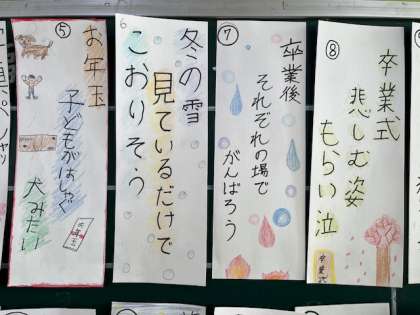 ⑤
お年玉
子どもがはしゃぐ
犬みたい
6
冬の雪
見ているだけで
こおりそう
⑦
卒業後
それぞれの場で
がんばろう
⑧
卒業式
悲しむ姿
もらい泣
卒業式